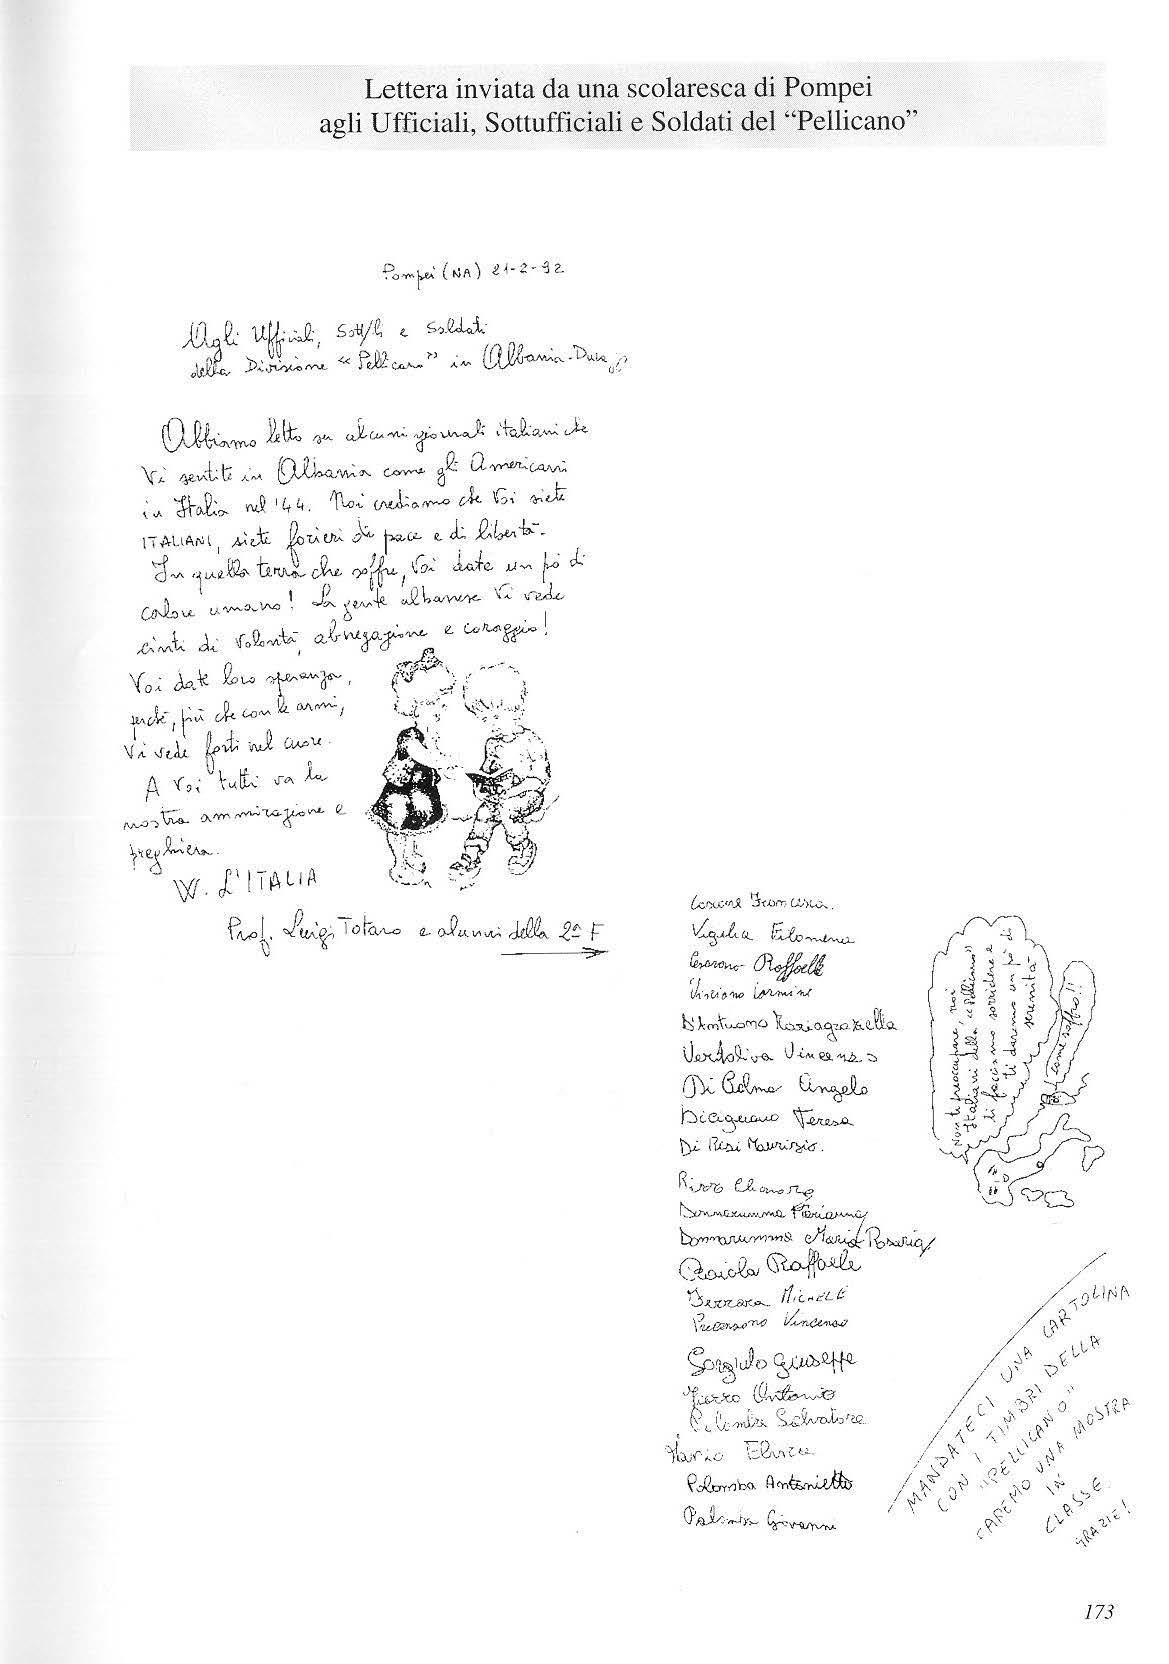 Lettera inviata da una scolaresca di Pompei
agli Ufficiali, Sottufficiali e Soldati del “Pellicano”
Pompei (NA) 21-2-92
Agli Ufficiali, Sott/li e Soldati
della Divisione “Pellicano” in Albania-
Abbiamo letto su alcuni giornali italiani che
Vi sentite in Albania come gli Americani
in Italia nel '44. Noi crediamo che Voi siete
ITALIANI, siete forieri di pace e di libertà.
In quella terra che soffre, Voi date un pò di
calore umano! La gente albanese Vi vede
cinti di volontà, abnegazione e coraggio!
Voi date loro speranza,
perché, più che con le armi,
Vi vede forti nel cuore.
A Voi tutti va la
nostra ammirazione e
preghiera.
W. L'ITALIA
Prof. Luigi Totaro e alunni della 2ª F
Francesca
Vigilia Filomena
Cesarano Raffaele
Visciano Carmine
D'Antuono Mariagraziella
Vertoliva Vincenzo
Di Palma Angelo
Teresa
Di Maurizio.
Rizzo Eleonora
Donnarumma Marianna
Donnarumma Maria Rosaria
Raiola Raffaele
Ferrara MICHELE
Vincenzo
Giuseppe
Fierro Antonio
Palomba Salvatore
Palomba Antonietta
Palomba Giovanni
Non ti preoccupare, noi
Italiani della “Pellicano”
ti facciamo sorridere e
ti daremo un pò di
serenità
come soffro!!
MANDATECI UNA CARTOLINA
CON I TIMBRI DELLA
“PELLICANO”
FAREMO UNA MOSTRA
IN
CLASSE.
GRAZIE!
173